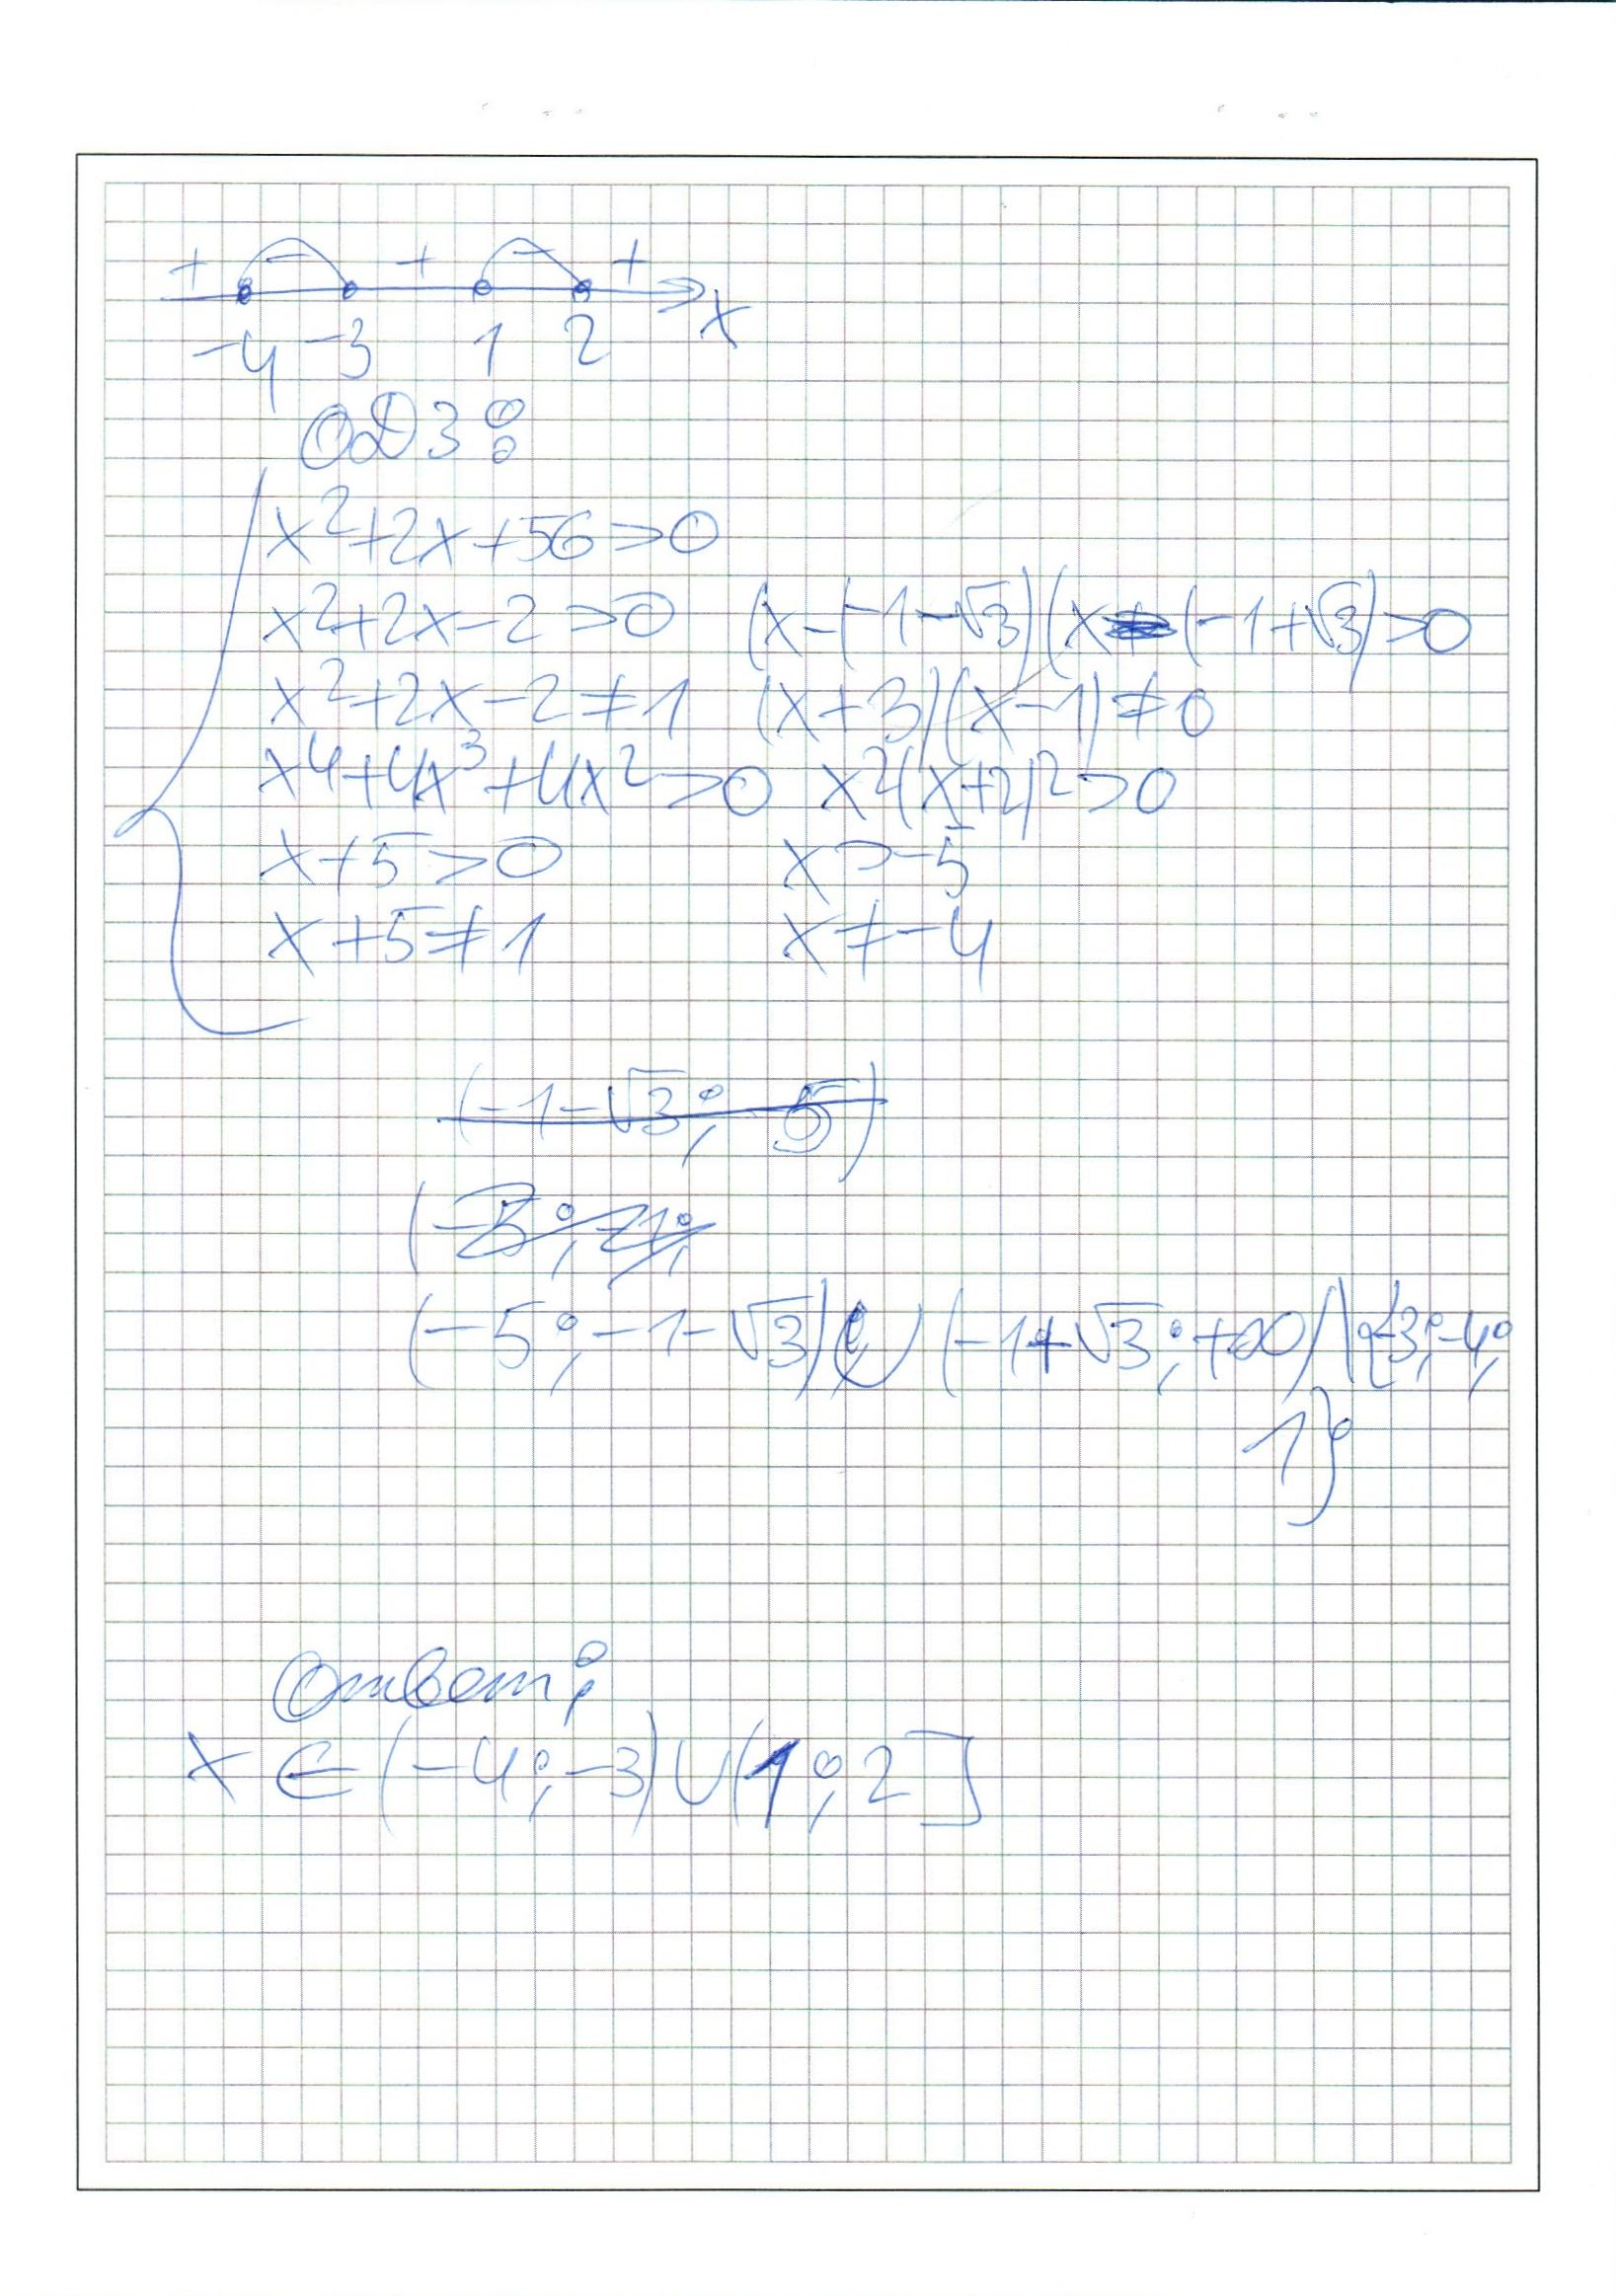 + − + − +
-4 -3 1 2 x
ОДЗ:
x²+2x+56>0
x²+2x-2>0 (x-(-1-√3)(x-(-1+√3)>0
x²+2x-2≠1 (x+3)(x-1)≠0
x⁴+4x³+4x²>0 x²(x+2)²>0
x+5>0 x>-5
x+5≠1 x≠-4
(-1-√3; -5)
(-5;-1-√3)∪(-1+√3;+∞)\{-3;-4;
1}
Ответ:
x∈(-4;-3)∪(1;2]